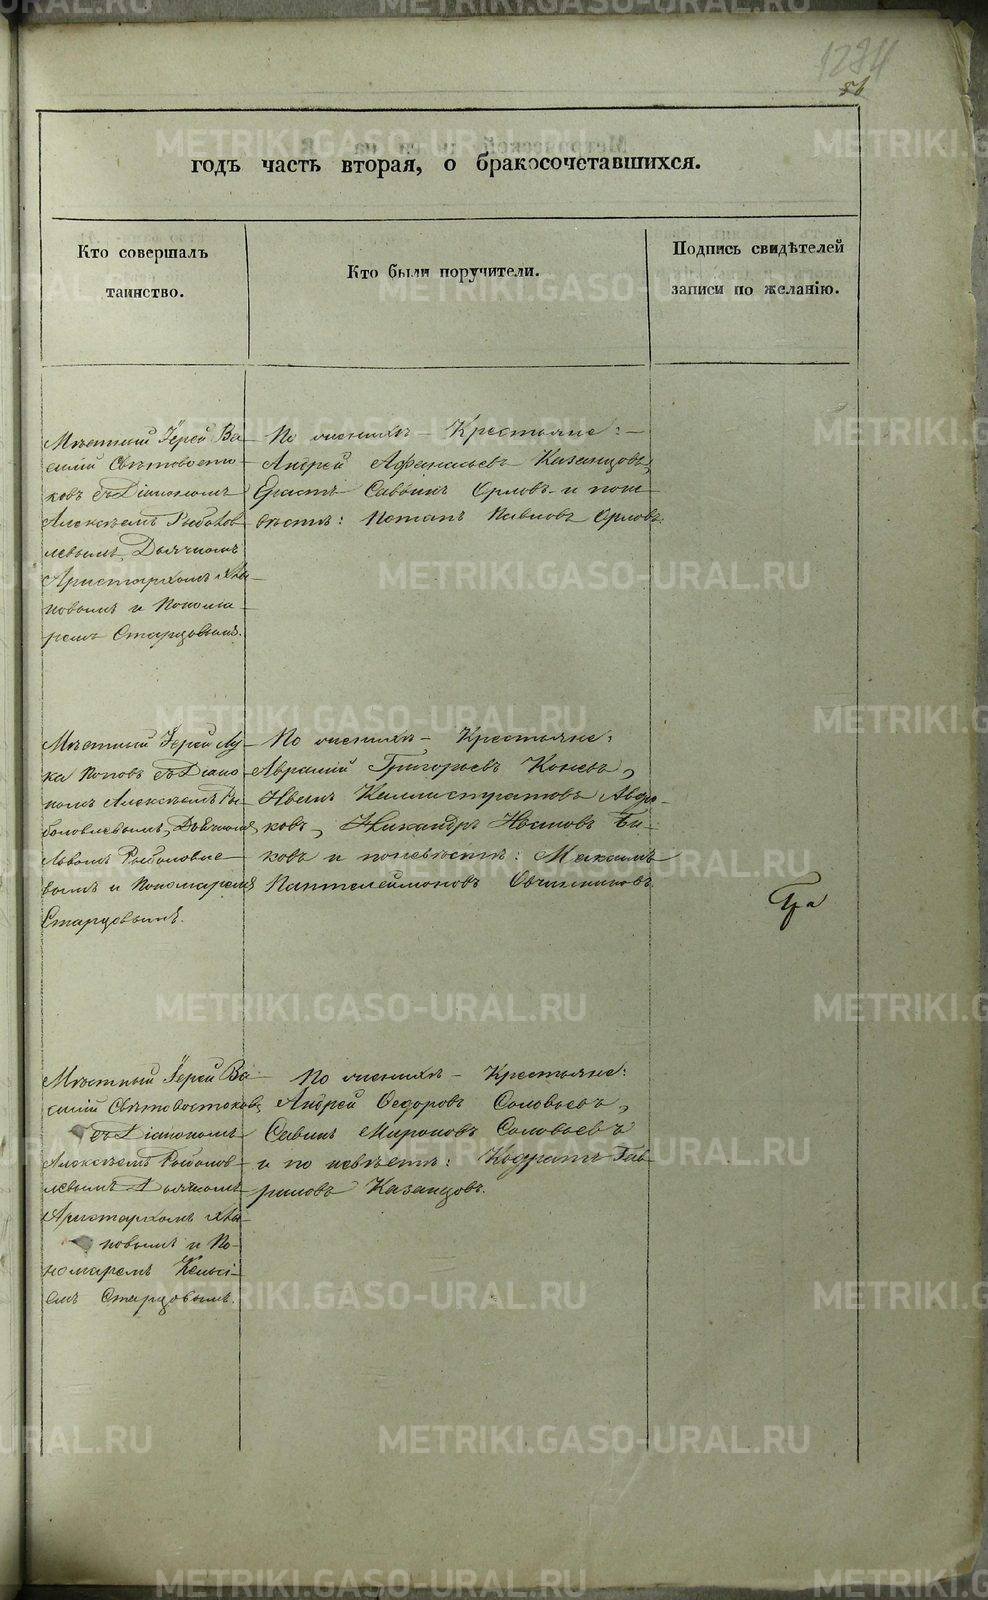 1234
56
годъ часть вторая, о бракосочетавшихся.
Кто совершалъ
таинство.
Кто были поручители.
Подпись свидѣтелей
записи по желанію.
Мѣстный Іерей Ва-
силій Свѣтовосто-
ковъ съ Діакономъ
Алексѣемъ Рыболов-
левымъ, Дьячкомъ
Аристархомъ
повымъ и Понома-
ремъ Старцовымъ.
По женихѣ – Крестьяне: –
Андрей Афанасьевъ Казанцовъ,
Ерастъ Саввинъ Орловъ и по не-
вѣстѣ: Потапъ Павловъ Орловъ.
Мѣстный Іерей Лу-
ка Поповъ съ Діако-
номъ Алексѣемъ Ры-
боловлевымъ, Дьячкомъ
Львомъ Рыболовле-
вымъ и Пономаремъ
Старцовымъ.
По женихѣ – Крестьяне:
Аврамій Григорьевъ Коневъ,
Иванъ Каллистратовъ Авдю-
ковъ, Никандръ Ивановъ Бы-
ковъ и по невѣстѣ: Максимъ
Пантелеймоновъ Овчинниковъ.
Мѣстный Іерей Ва-
силій Свѣтовостоковъ
съ Діакономъ
Алексѣемъ Рыболов-
левымъ Дьячкомъ
Аристархомъ
повымъ и По-
номаремъ Кельсі-
емъ Старцовымъ.
По женихѣ – Крестьяне:
Андрей Ѳедоровъ Соловьевъ,
Савинъ Мироновъ Соловьевъ
и по невѣстѣ: Кодратъ Гав-
риловъ Казанцовъ.
METRIKI.GASO-URAL.RU